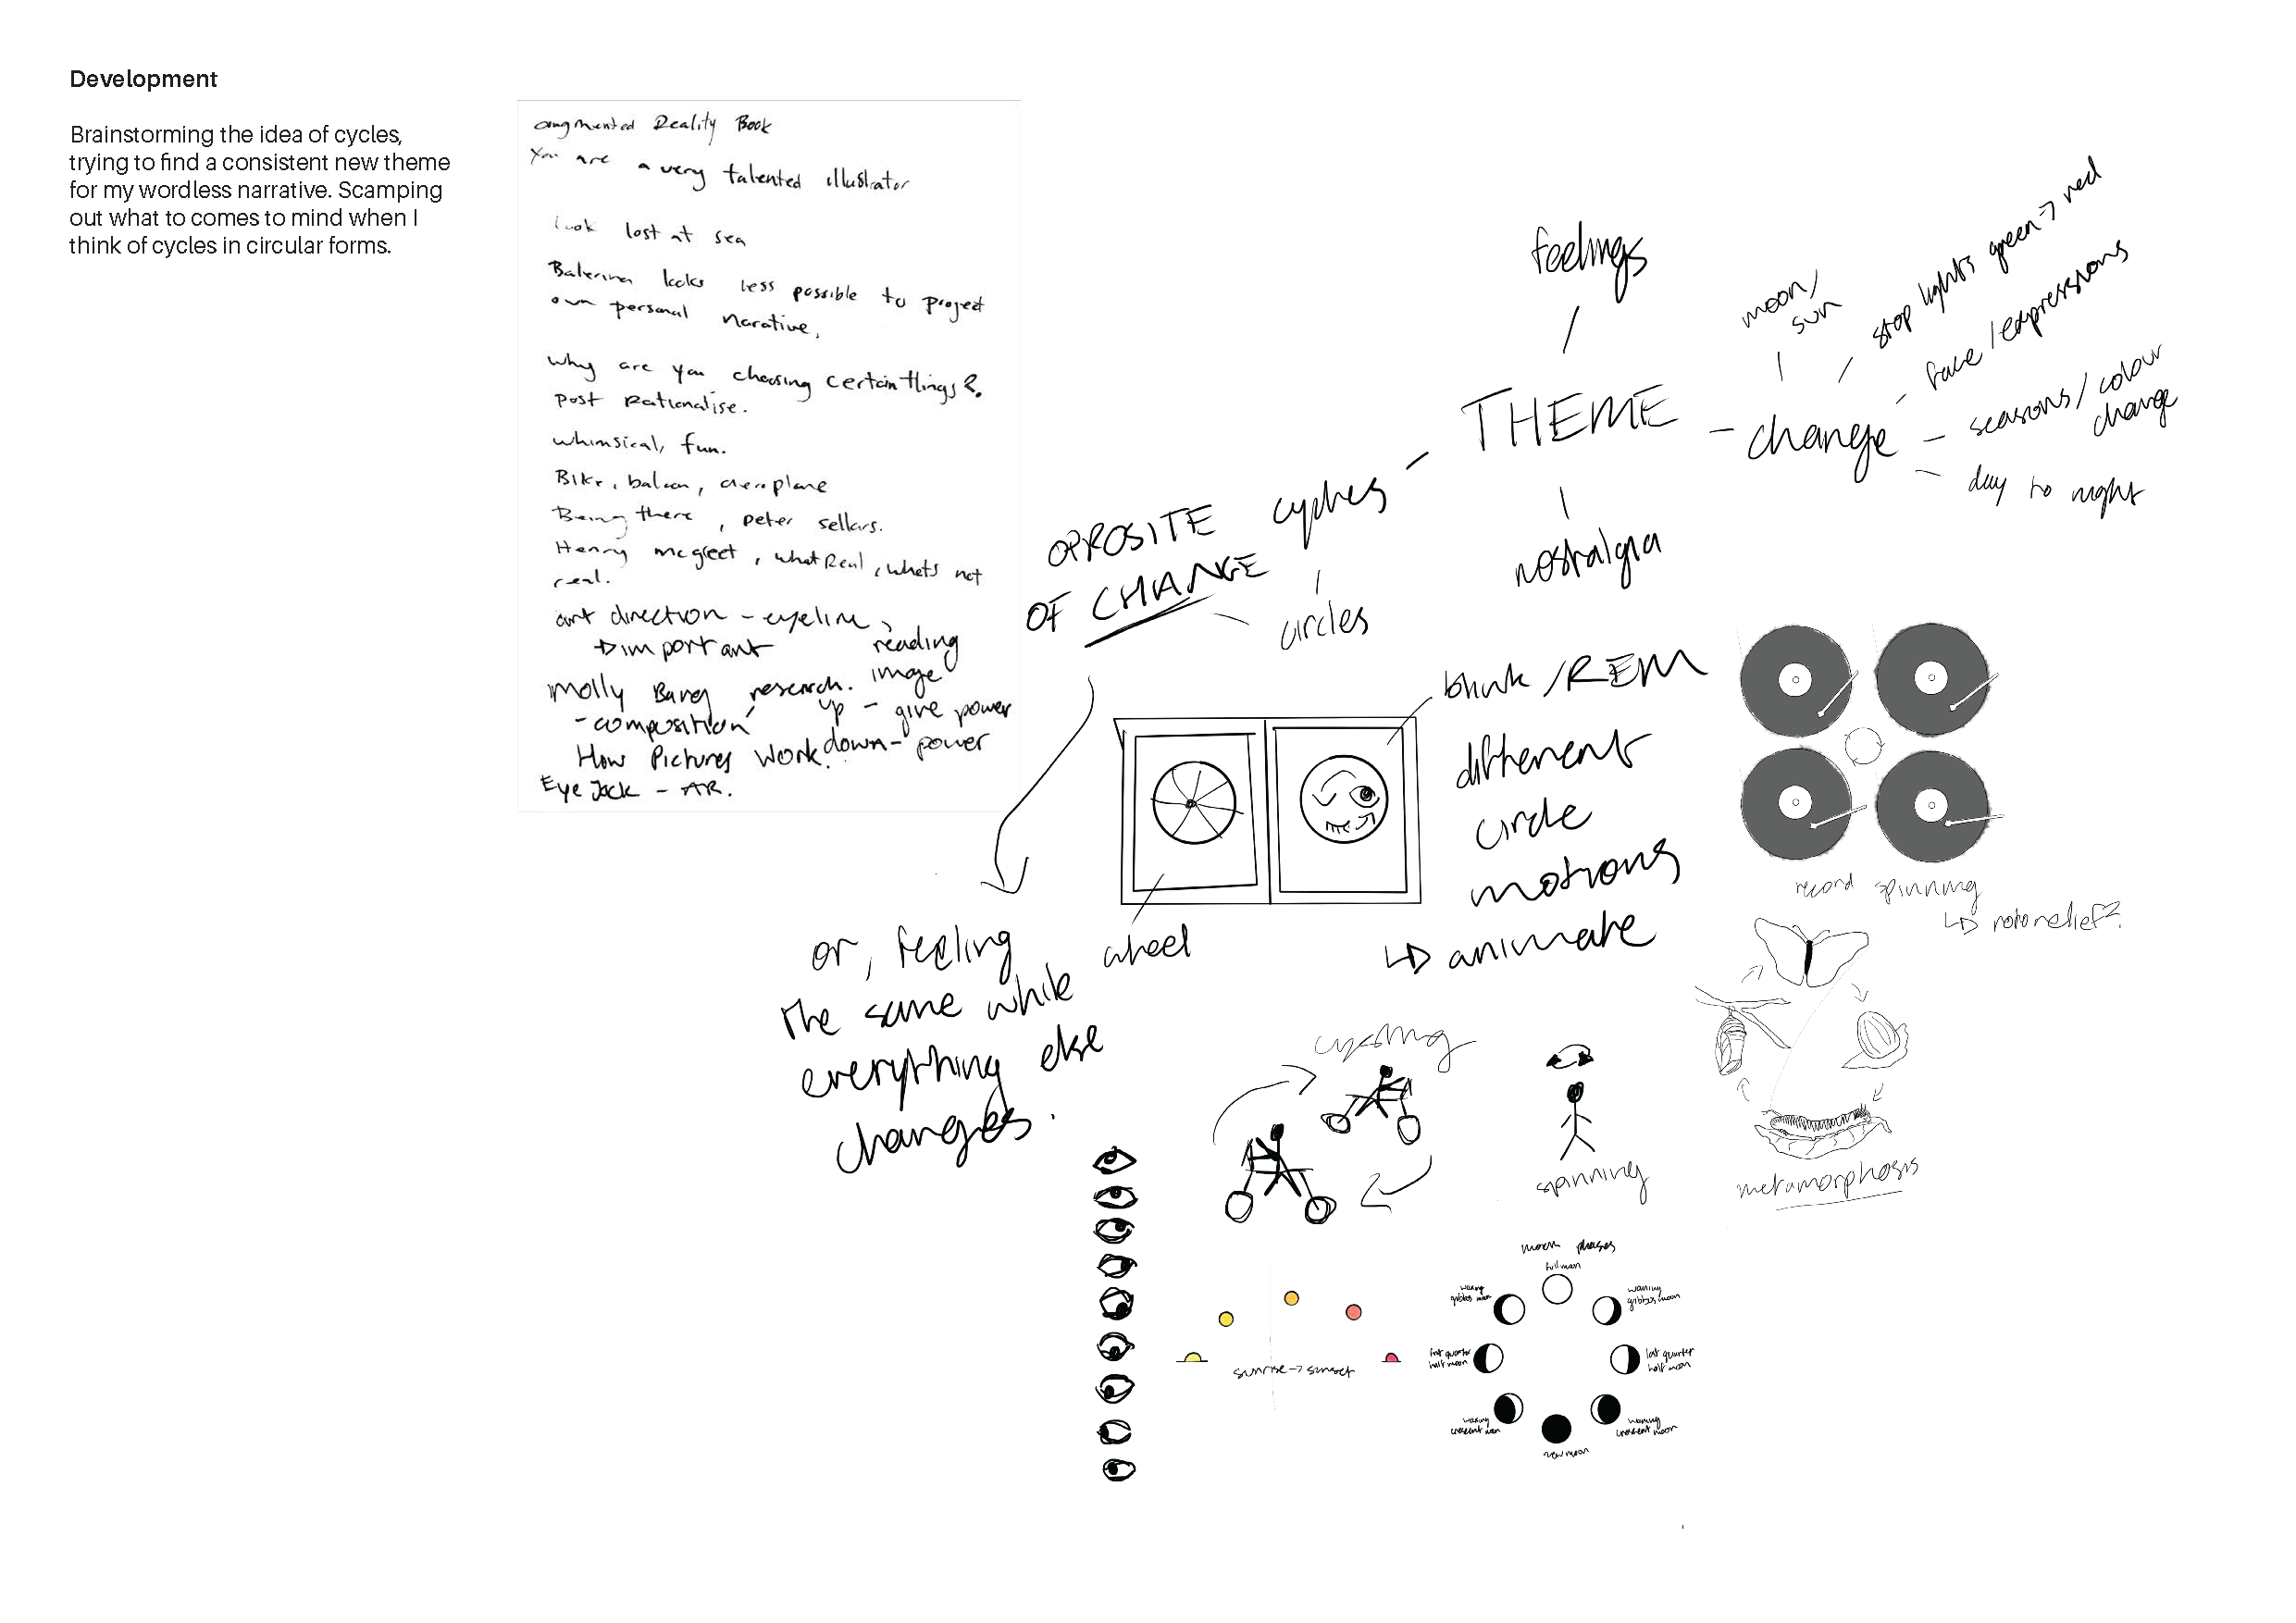 Development
Brainstorming the idea of cycles,
trying to find a consistent new theme
for my wordless narrative. Scamping
out what to comes to mind when I
think of cycles in circular forms.
augmented Reality Book
You are a very talented illustrator
look lost at sea
Balerina looks less possible to project
own personal narative.
why are you choosing certain things?.
post rationalise.
whimsical, fun.
Bike, baloon, aeroplane
Being there, peter sellers.
Henry mcgleet, what Real, whats not
real.
art direction - eyeline,
↳ important
reading
image
Molly Bang research.
up - give power
- composition
down - power
How Pictures Work.
Eye Jack - AR.
feelings
THEME
nostalgia
change
moon/
sun
stop lights green → red
face / expressions
seasons / colour
change
day to night
cycles
circles
OPPOSITE
OF CHANGE
or, feeling
the same while
everything else
changes.
wheel
blink / REM
different
circle
motions
↳ animate
record spinning
↳ rotorelief?
metamorphosis
cycling
spinning
sunrise → sunset
moon phases
full moon
waning
gibbos moon
last quarter
half moon
waning
crescent moon
new moon
waxing
crescent moon
first quarter
half moon
waxing
gibbos moon